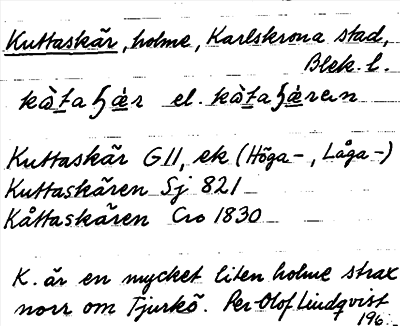 Kuttaskär, holme, Karlskrona stad,
Blek. l.
kàt̲aɧæ̲r el. kàt̲aɧæ̲ren
Kuttaskär G11, ek (Höga-, Låga-)
Kuttaskären Sj 821
Kåttaskären Cro 1830
K. är en mycket liten holme strax
norr om Tjurkö. Per-Olof Lindqvist
196